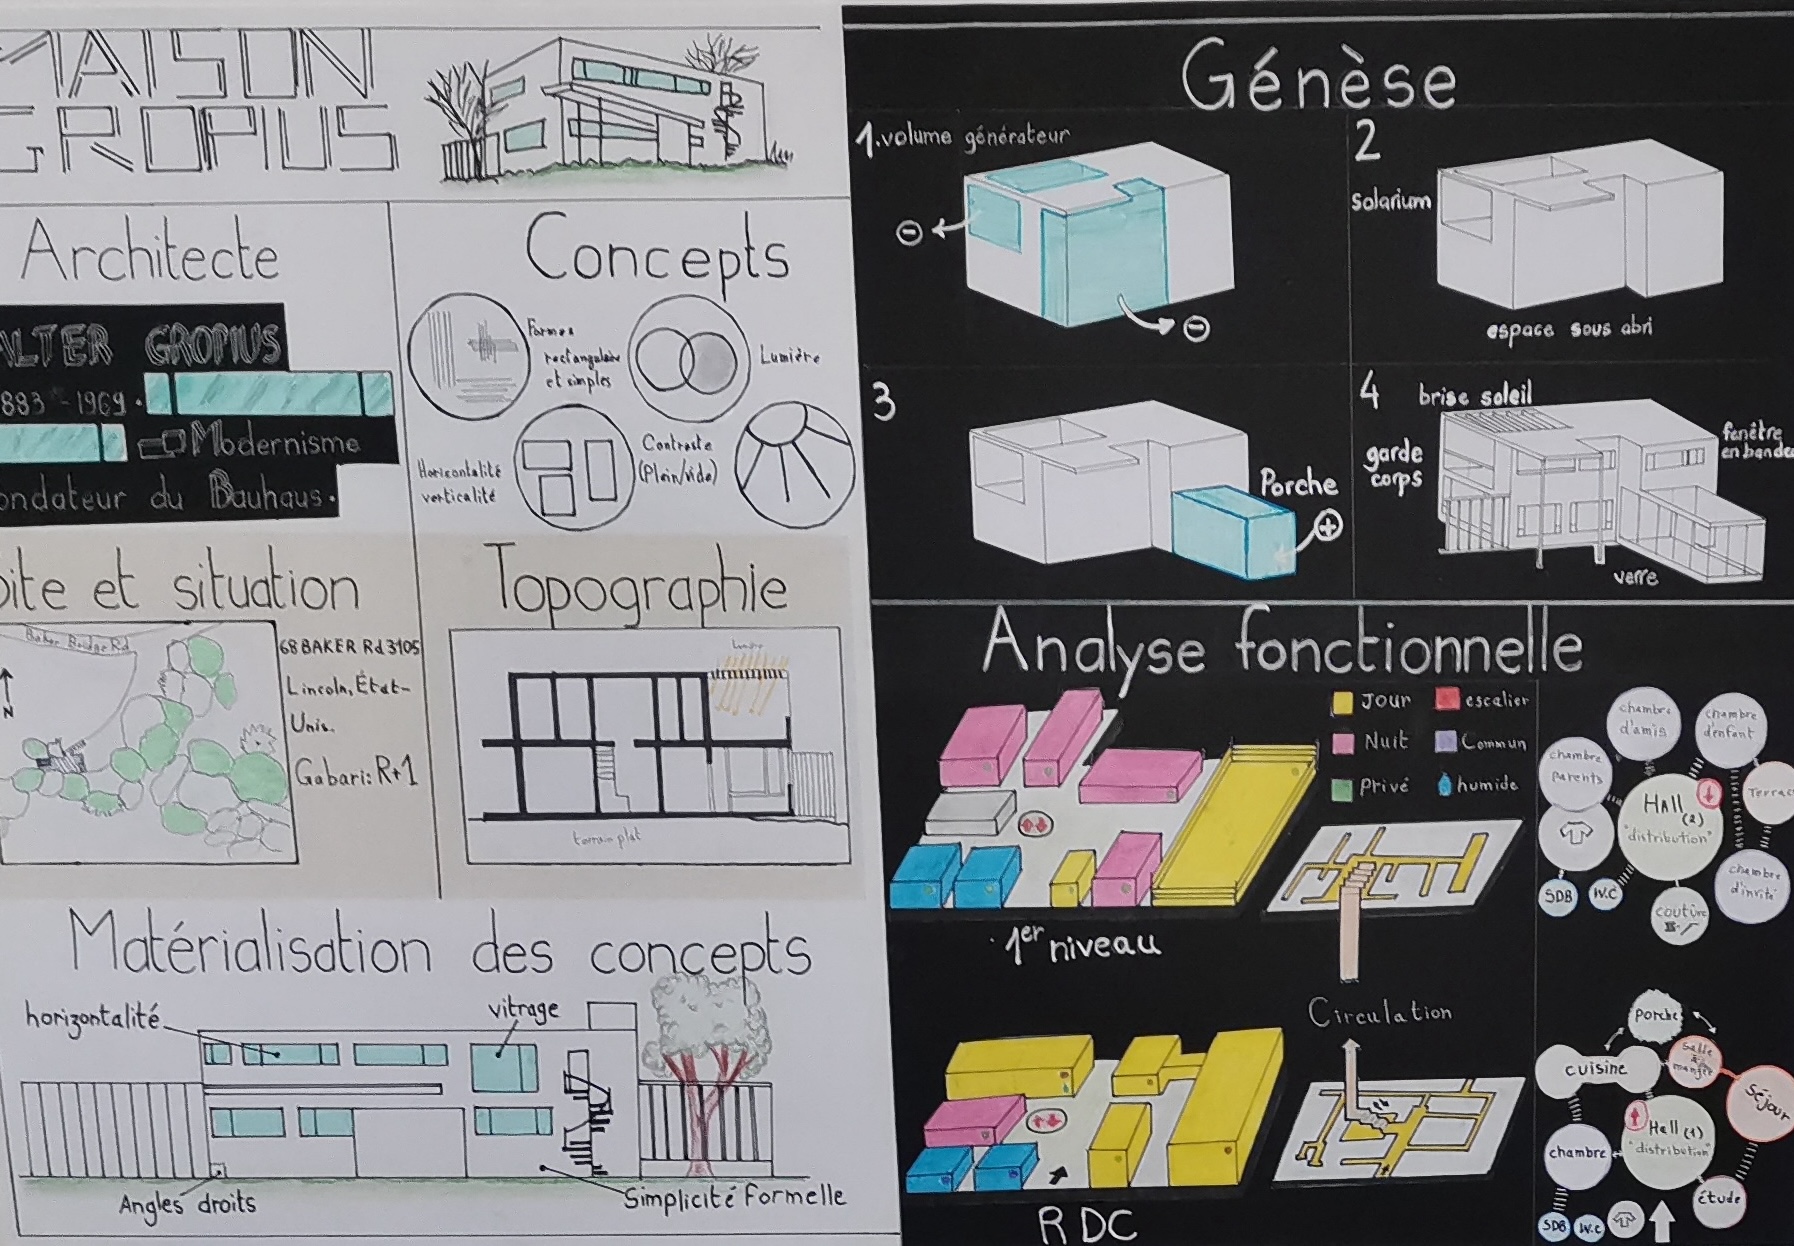 MAISON
GROPIUS
Architecte
ALTER GROPIUS
883 - 1969.
Modernisme
ondateur du Bauhaus.
Concepts
Formes
rectangulaire
et simples
Lumière
Horizontalité
verticalité
Contraste
(Plein/vide)
site et situation
Baker Bridge Rd
N
68 BAKER Rd 3105
Lincoln, État-
Unis.
Gabari: R+1
Topographie
lumière
terrain plat
Matérialisation des concepts
horizontalité
vitrage
Angles droits
Simplicité formelle
Génèse
1. volume générateur
2
solarium
espace sous abri
3
Porche
4
brise soleil
garde
corps
fenêtre
en bande
verre
Analyse fonctionnelle
Jour
escalier
Nuit
Commun
Privé
humide
1er niveau
Circulation
RDC
chambre
d'amis
chambre
d'enfant
chambre
parents
HAll
(2)
"distribution"
Terrac
SDB
W.C
couture
chambre
d'invité
porche
cuisine
salle
à
manger
Séjour
Hall (1)
"distribution"
chambre
étude
SDB
W.C